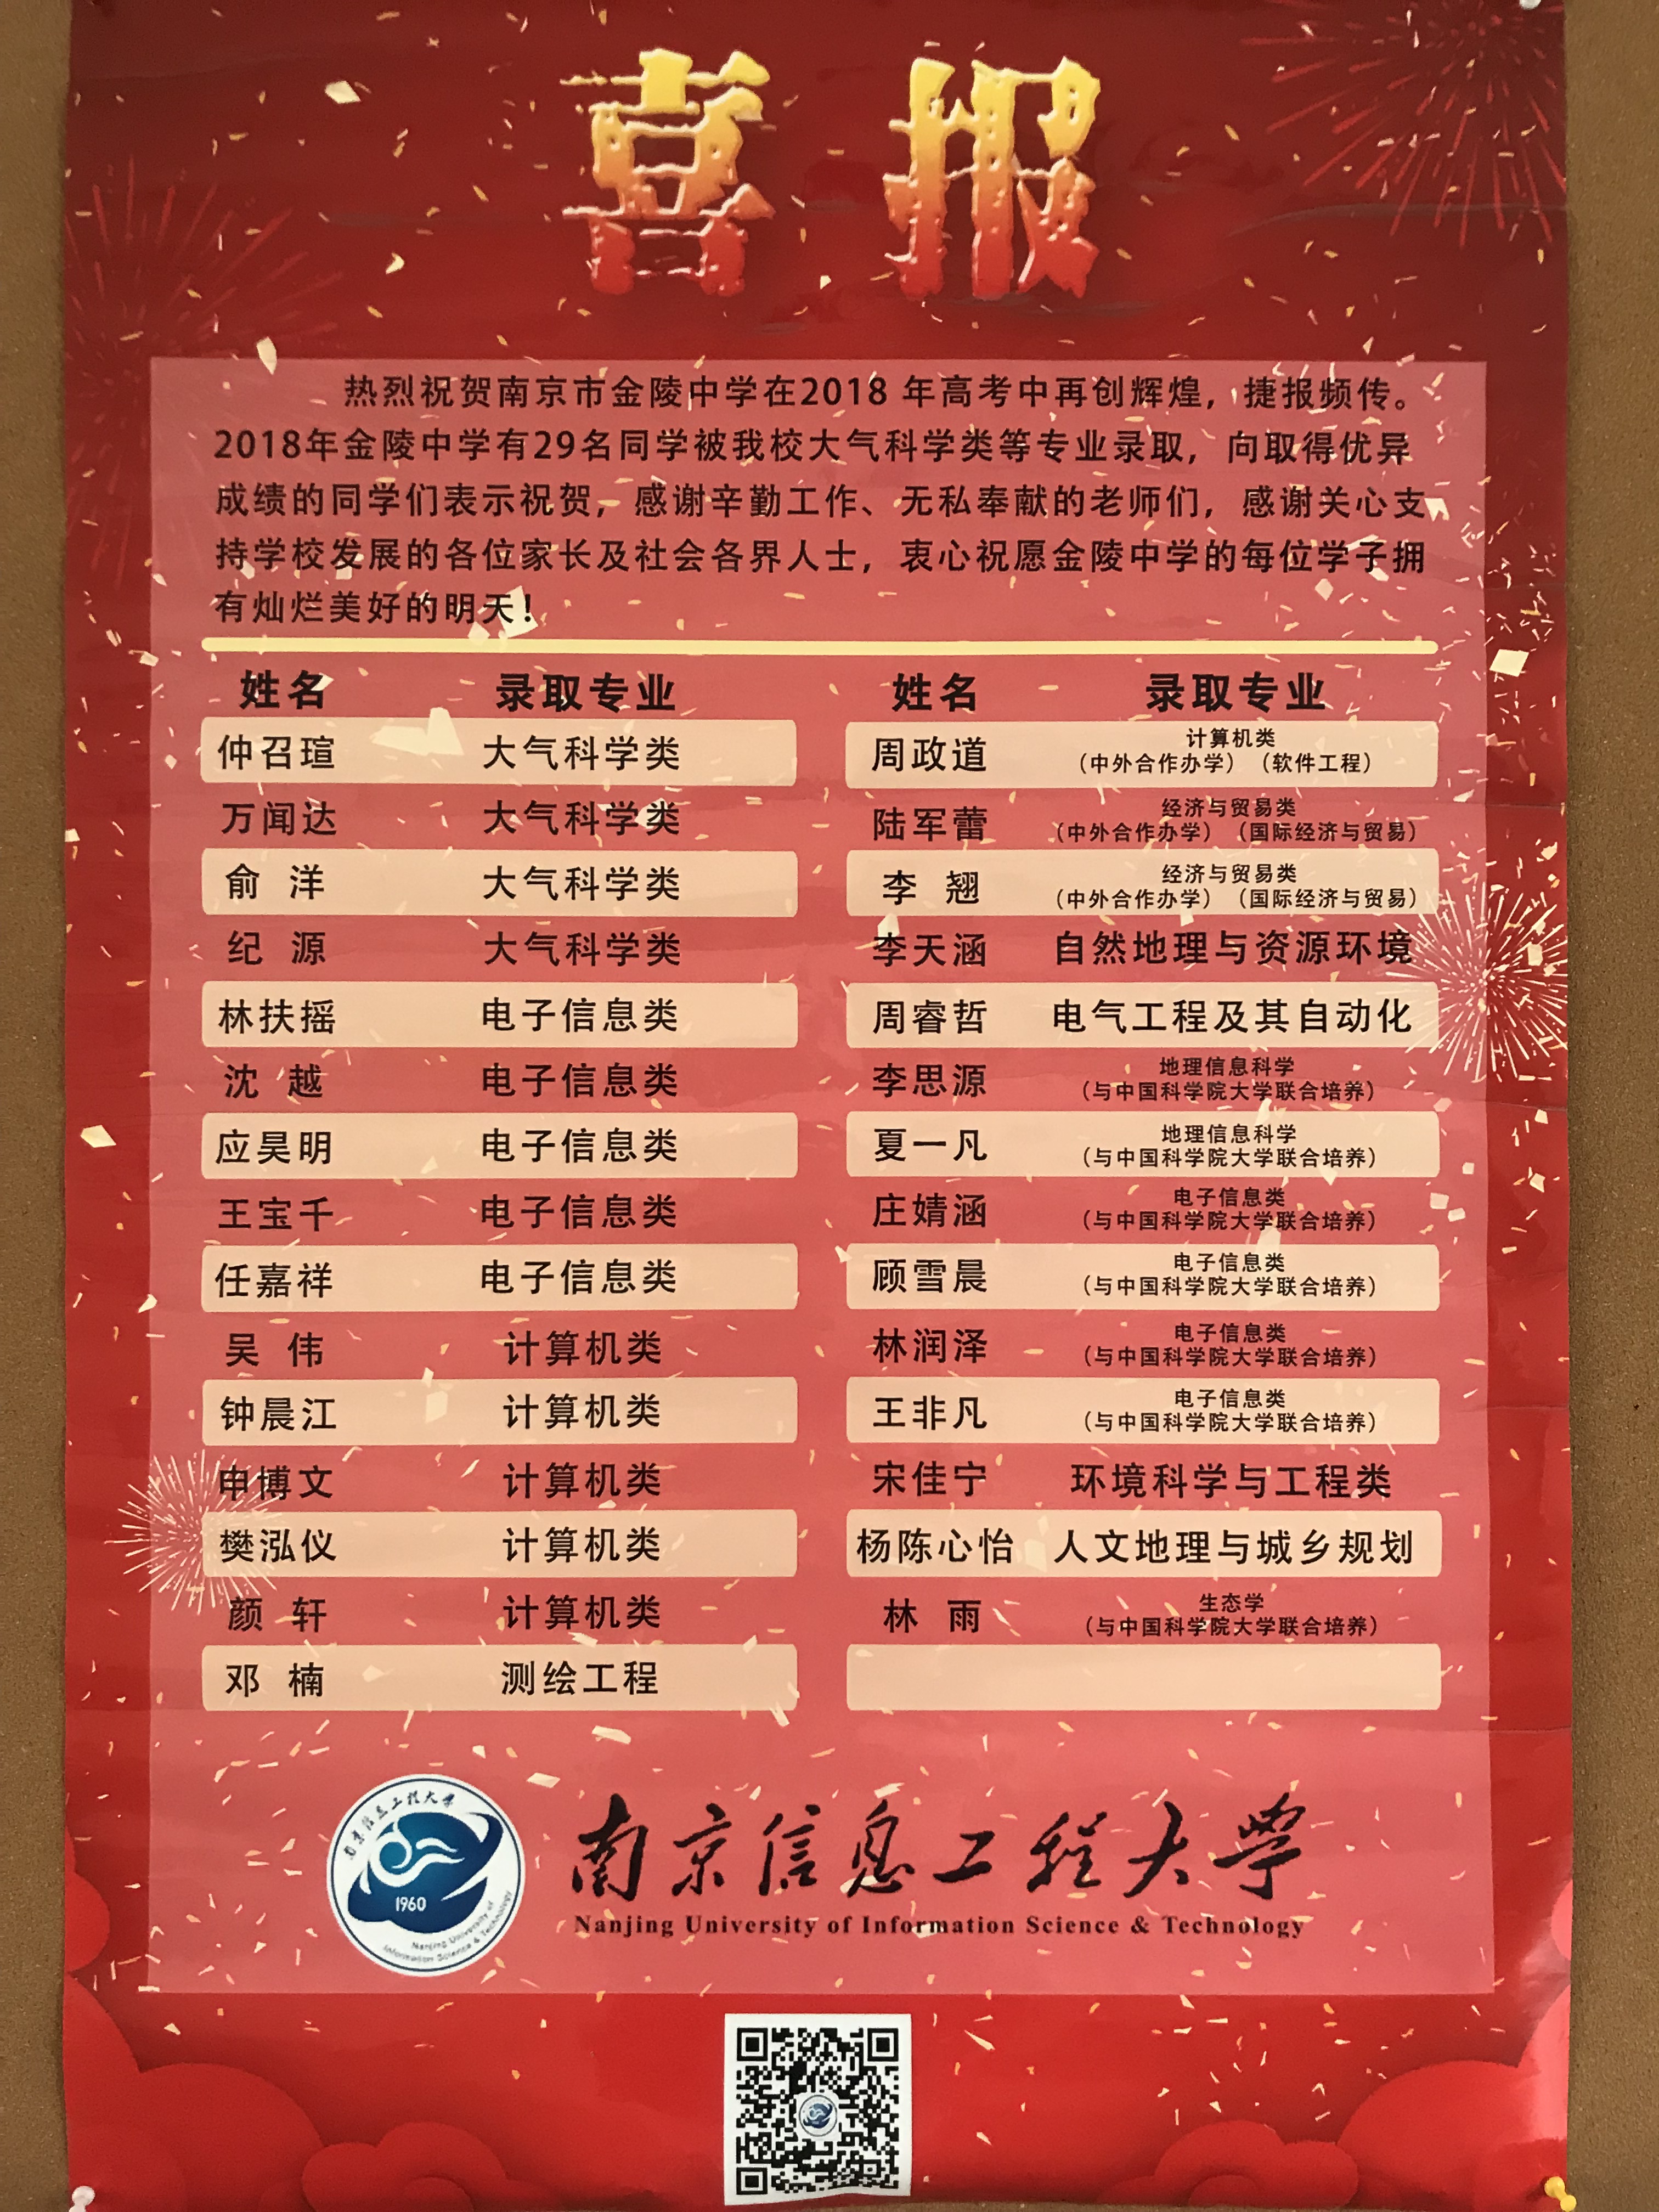 喜报
热烈祝贺南京市金陵中学在2018 年高考中再创辉煌，捷报频传。
2018年金陵中学有29名同学被我校大气科学类等专业录取，向取得优异
成绩的同学们表示祝贺，感谢辛勤工作、无私奉献的老师们，感谢关心支
持学校发展的各位家长及社会各界人士，衷心祝愿金陵中学的每位学子拥
有灿烂美好的明天！
姓名 录取专业 姓名 录取专业
仲召瑄 大气科学类 周政道 计算机类
（中外合作办学）（软件工程）
万闻达 大气科学类 陆军蕾 经济与贸易类
（中外合作办学）（国际经济与贸易）
俞 洋 大气科学类 李 翘 经济与贸易类
（中外合作办学）（国际经济与贸易）
纪 源 大气科学类 李天涵 自然地理与资源环境
林扶摇 电子信息类 周睿哲 电气工程及其自动化
沈 越 电子信息类 李思源 地理信息科学
（与中国科学院大学联合培养）
应昊明 电子信息类 夏一凡 地理信息科学
（与中国科学院大学联合培养）
王宝千 电子信息类 庄婧涵 电子信息类
（与中国科学院大学联合培养）
任嘉祥 电子信息类 顾雪晨 电子信息类
（与中国科学院大学联合培养）
吴 伟 计算机类 林润泽 电子信息类
（与中国科学院大学联合培养）
钟晨江 计算机类 王非凡 电子信息类
（与中国科学院大学联合培养）
申博文 计算机类 宋佳宁 环境科学与工程类
樊泓仪 计算机类 杨陈心怡 人文地理与城乡规划
颜 轩 计算机类 林 雨 生态学
（与中国科学院大学联合培养）
邓 楠 测绘工程
南京信息工程大学
1960
Nanjing University of
Information Science & Technology
南京信息工程大学
Nanjing University of Information Science & Technology